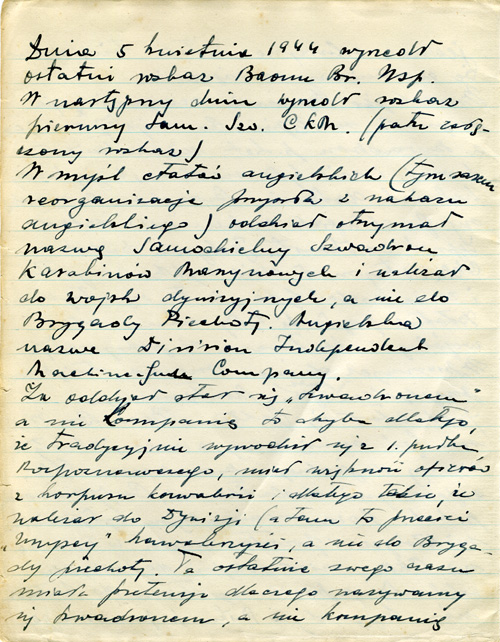 Dnia 5 kwietnia 1944 wyszedł
ostatni rozkaz Baonu Br. Wsp.
W następny dniu wyszedł rozkaz
pierwszy Sam. Szw. CKM. (patrz załą-
czony rozkaz)
W myśl etatów angielskich (tym razem
reorganizacja przyszła z nakazu
angielskiego) oddział otrzymał
nazwę Samodzielny Szwadron
Karabinów Maszynowych i należał
do wojsk dywizyjnych, a nie do
Brygady Piechoty. Angielska
nazwa Division Independent
Machine-Guns Company.
Że oddział stał się „Szwadronem"
a nie Kompanią to chyba dlatego,
że tradycyjnie wywodził się z 1. pułku
Rozpoznawczego, miał większość oficerów
z korpusu kawalerii i dlatego także, że
należał do Dywizji (a tam to przecież
„wszyscy" kawalerzyści, a nie do Bryga-
dy piechoty. Ta ostatnia swego czasu
miała pretensje dlaczego nazywamy
się szwadronem, a nie kompanią